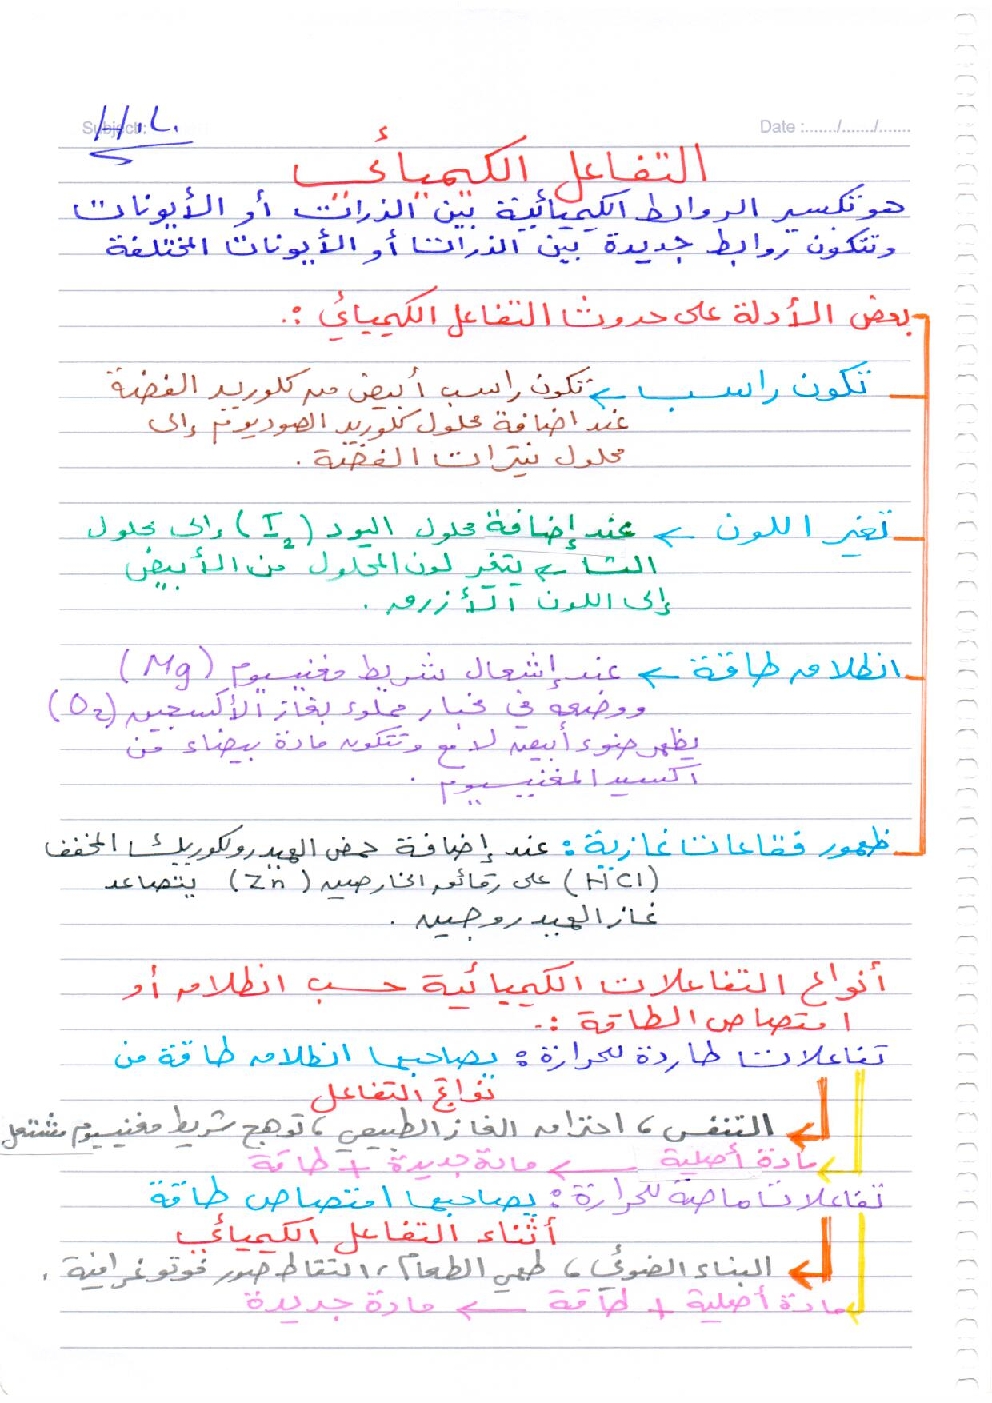 Subject:
Date :......./......./.......
التفاعل الكيميائي
هو تكسير الروابط الكيميائية بين الذرات أو الأيونات
وتتكون روابط جديدة بين الذرات أو الأيونات المختلفة
بعض الأدلة على حدوث التفاعل الكيميائي :.
تكون راسب ← تكون راسب أبيض من كلوريد الفضة
عند اضافة محلول كلوريد الصوديوم إلى
محلول نيترات الفضة .
تغير اللون ← عند إضافة محلول اليود (I₂) إلى محلول
النشا ← يتغير لون المحلول من الأبيض
إلى اللون الأزرق .
انطلاق طاقة ← عند إشعال شريط مغنيسيوم (Mg)
ووضعه في مخبار مملوء بغاز الأكسجين (O₂)
يظهر ضوء أبيض لامع وتتكون مادة بيضاء من
أكسيد المغنيسيوم .
ظهور فقاعات غازية : عند إضافة حمض الهيدروكلوريك المخفف
(HCl) على رقائق الخارصين (Zn) يتصاعد
غاز الهيدروجين .
أنواع التفاعلات الكيميائية حسب انطلاق أو
امتصاص الطاقة :.
تفاعلات طاردة للحرارة : يصاحبها انطلاق طاقة من
نواتج التفاعل
التنفس ، احتراق الغاز الطبيعي ، توهج شريط مغنيسيوم مشتعل
مادة أصلية ← مادة جديدة + طاقة
تفاعلات ماصة للحرارة : يصاحبها امتصاص طاقة
أثناء التفاعل الكيميائي
البناء الضوئي ، طهي الطعام ، التقاط صور فوتوغرافية .
مادة أصلية + طاقة ← مادة جديدة